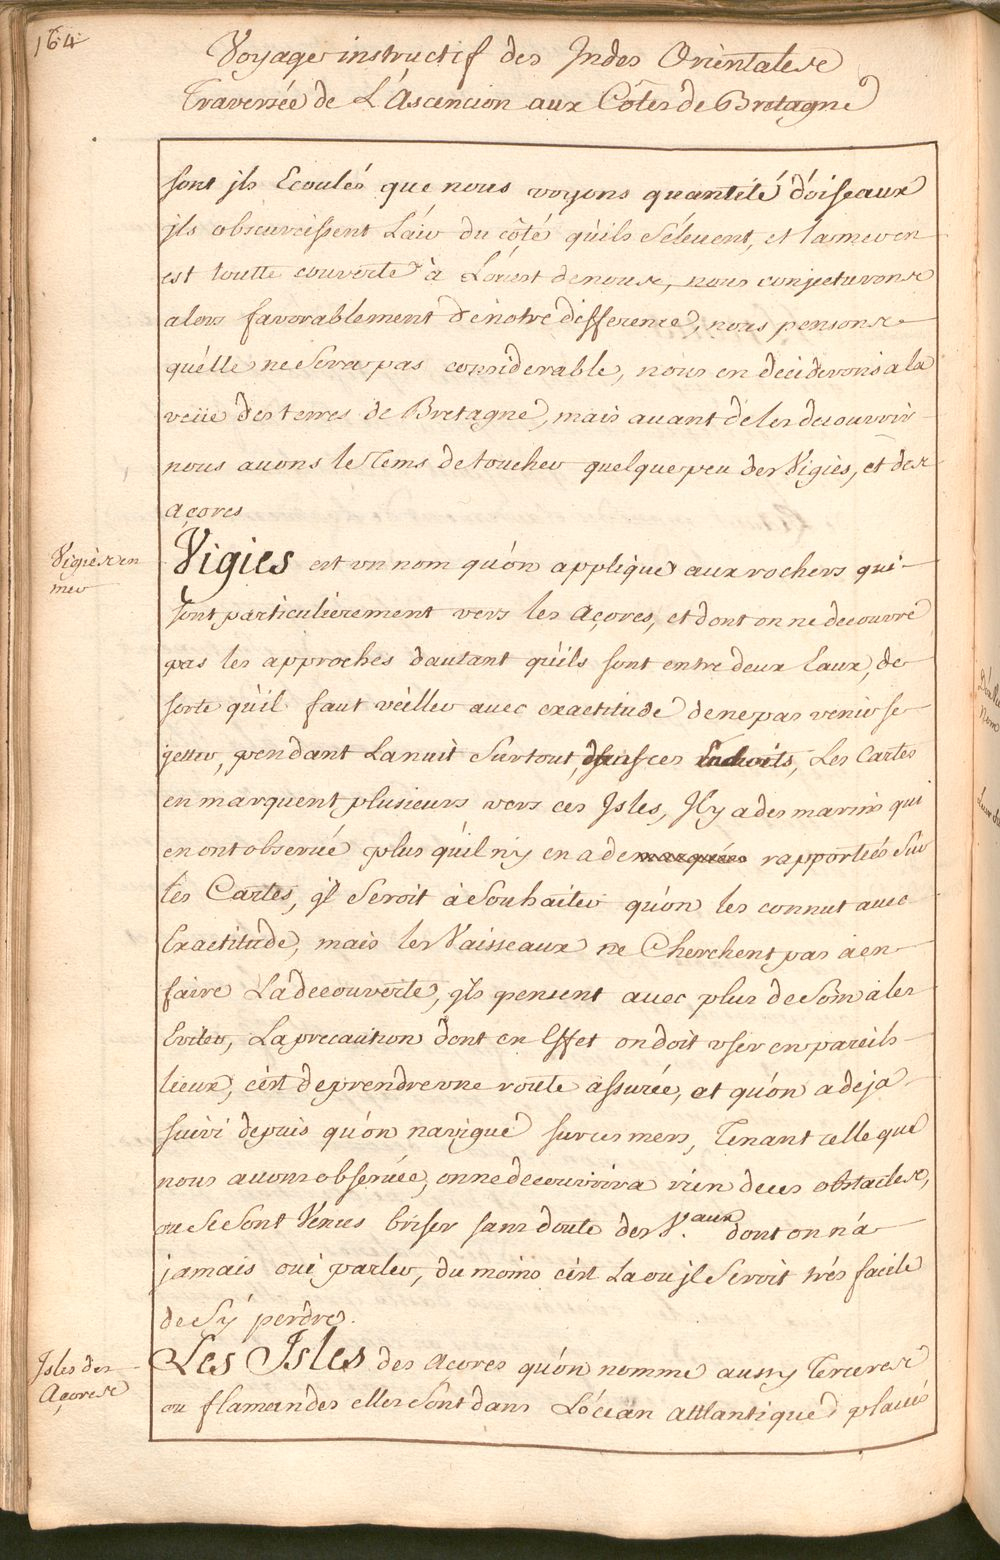 164
Voyage instructif des Indes Orientales
Traversée de L'Ascencion aux Côtes de Bretagne
sont jls Ecoulés que nous voyons quantité d'oiseaux
jls obscurcissent L'air du côté qu'ils s'éleuent, et la mer en
est toutte couverte à L'ouest de nous, nous conjecturons
alors favorablement de notre difference, nous pensons
qu'elle ne Sera pas considerable, nous en deciderons a la
veüe des terres de Bretagne, mais auant de les decouvrir
nous auons le Tems de toucher quelque peu des Vigies, et des
açores
Vigies en
mer
Vigies est un nom qu'on applique aux rochers qui
sont particulierement vers les açores, et dont on ne decouvre
pas les approches d'autant qu'ils sont entre deux Eaux, de
sorte qu'il faut veiller auec exactitude de ne pas venir se
jetter, pendant La nuit Surtout, dans ces Endroits, Les Cartes
en marquent plusieurs vers ces Isles, Jl y a des marins qui
en ont obserué plus qu'il n'y en a de marqués rapportées Sur
les Cartes, jl Seroit à Souhaiter qu'on les connut auec
Exactitude, mais les Vaisseaux ne Cherchent pas à en
faire La decouverte, jls pensent auec plus de Soin a les
Eviter, La precaution dont en Effet on doit user en pareils
lieux, c'est de prendre une route assurée, et qu'on a deja
suivi depuis qu'on navigue sur ces mers, Tenant celle que
nous auons obseruée, on ne decouvrira rien de ces obstacles,
ou Se Sont Venus briser sans doute des V.aux dont on n'a
jamais oui parler, du moins c'est La ou jl Seroit trés facile
de S'y perdre.
Isles des
Açores
Les Isles des Açores qu'on nomme aussy Terceres
ou flamandes elles Sont dans L'océan atlantique placés